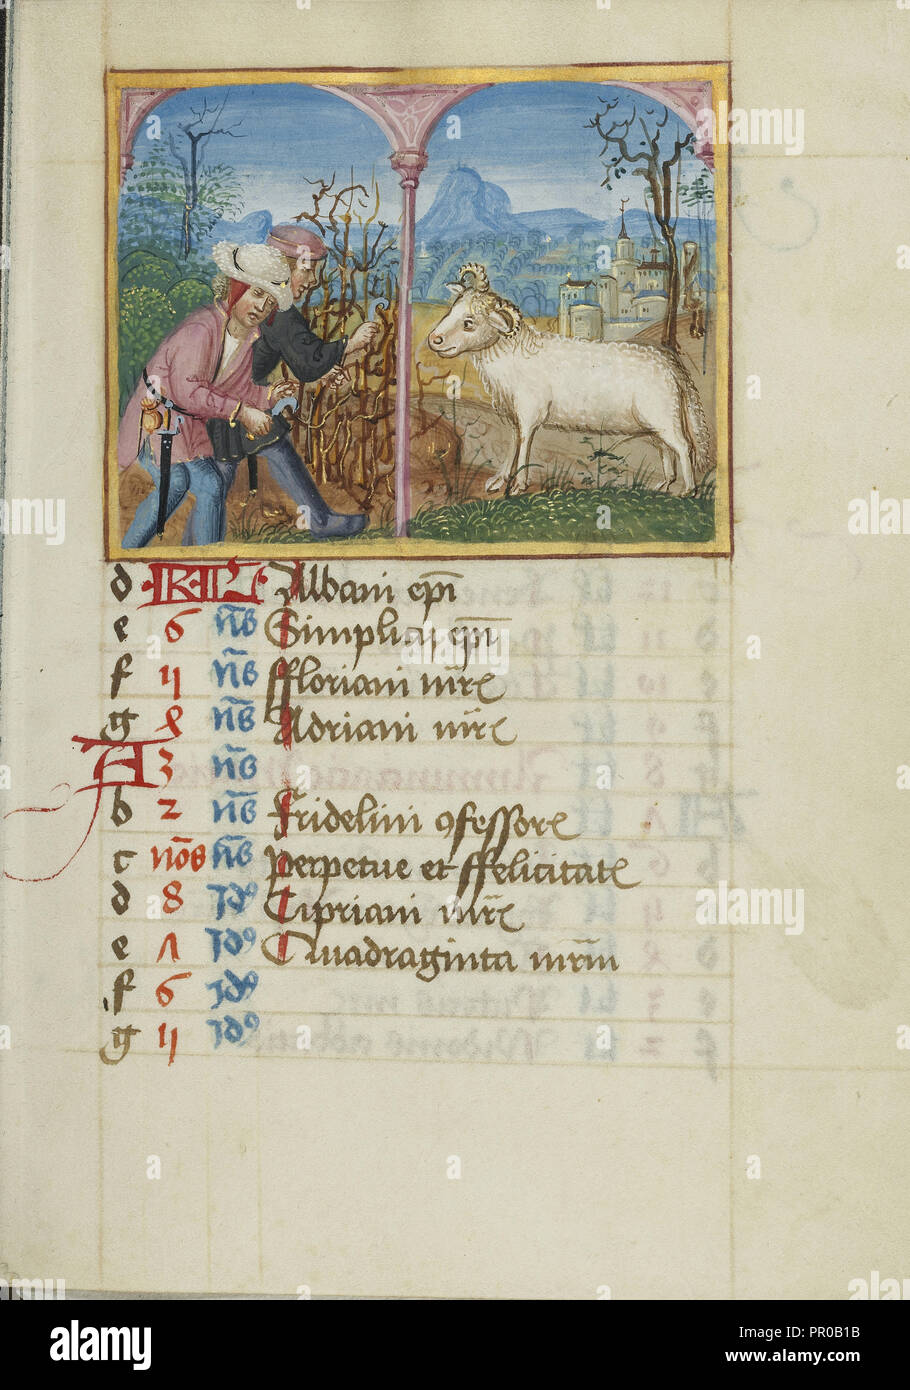 d KL Albani ep̄i
e 6 n̄ꝰ Simplicii ep̄i
f 4 n̄ꝰ ffloriani mr̄e
g 8 n̄ꝰ Adriani mr̄e
A 3 n̄ꝰ
b 2 n̄ꝰ Fridelini ꝯfessore
c nōs n̄ꝰ Perpetue et ffelicitate
d 8 Jdꝰ Cipriani mr̄e
e Λ Jdꝰ Quadraginta mr̄m
f 6 Jdꝰ
g 4 Jdꝰ
alamy
Image ID: PR0B1B
www.alamy.com